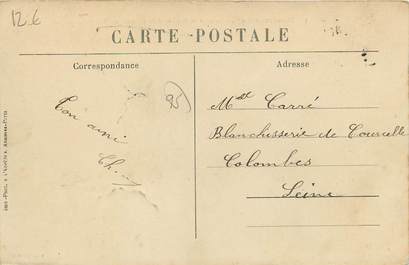 12 €
CARTE POSTALE
Correspondance
Adresse
95
Ton ami
Ch.
Mr Carré
Blanchisserie de Courcelle
Colombes
Seine